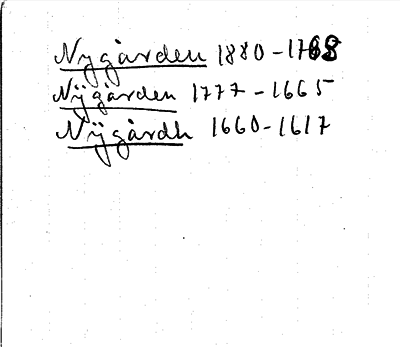 Nygården 1880-1788
Nÿgården 1777-1665
Nÿgårdh 1660-1617